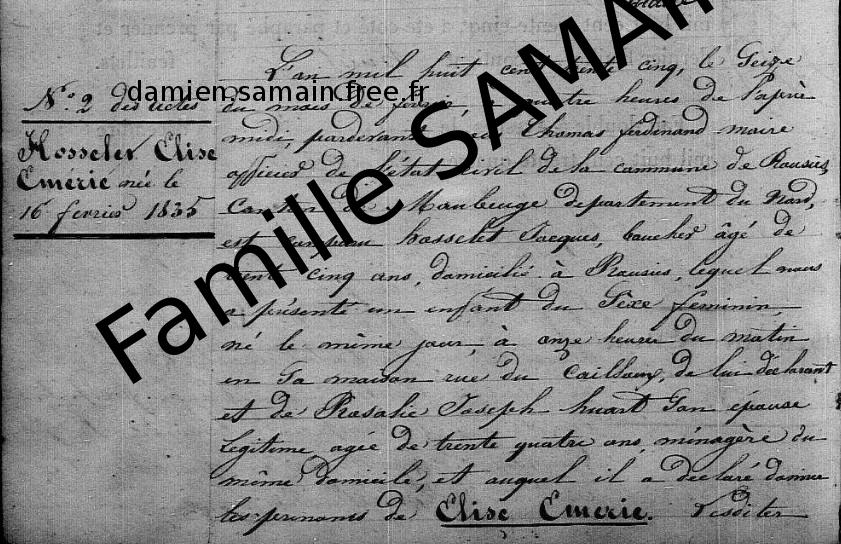 N.° 2 des actes
Hosselet Elise
Emérie née le
16 fevrier 1835
L'an mil huit cent trente cinq, le Seize
du mois de fevrier, à quatre heures de l'après
midi, pardevant Thomas ferdinand maire
officier de l'état civil de la commune de Rousies,
Canton de Maubeuge departement du Nord,
est comparu hosselet Jacques, boucher âgé de
trente cinq ans, domicilié à Rousies, lequel nous
a présenté un enfant du Sexe féminin,
né le même jour, à onze heures du matin
en Sa maison rue du Cailloux, de lui déclarant
et de Rosalie Joseph huart Son épouse
legitime agée de trente quatre ans, ménagère du
même domicile, et auquel il a declaré donner
les prenoms de Elise Emerie. Lesdites
damien.samain.free.fr
Famille SAMAIN